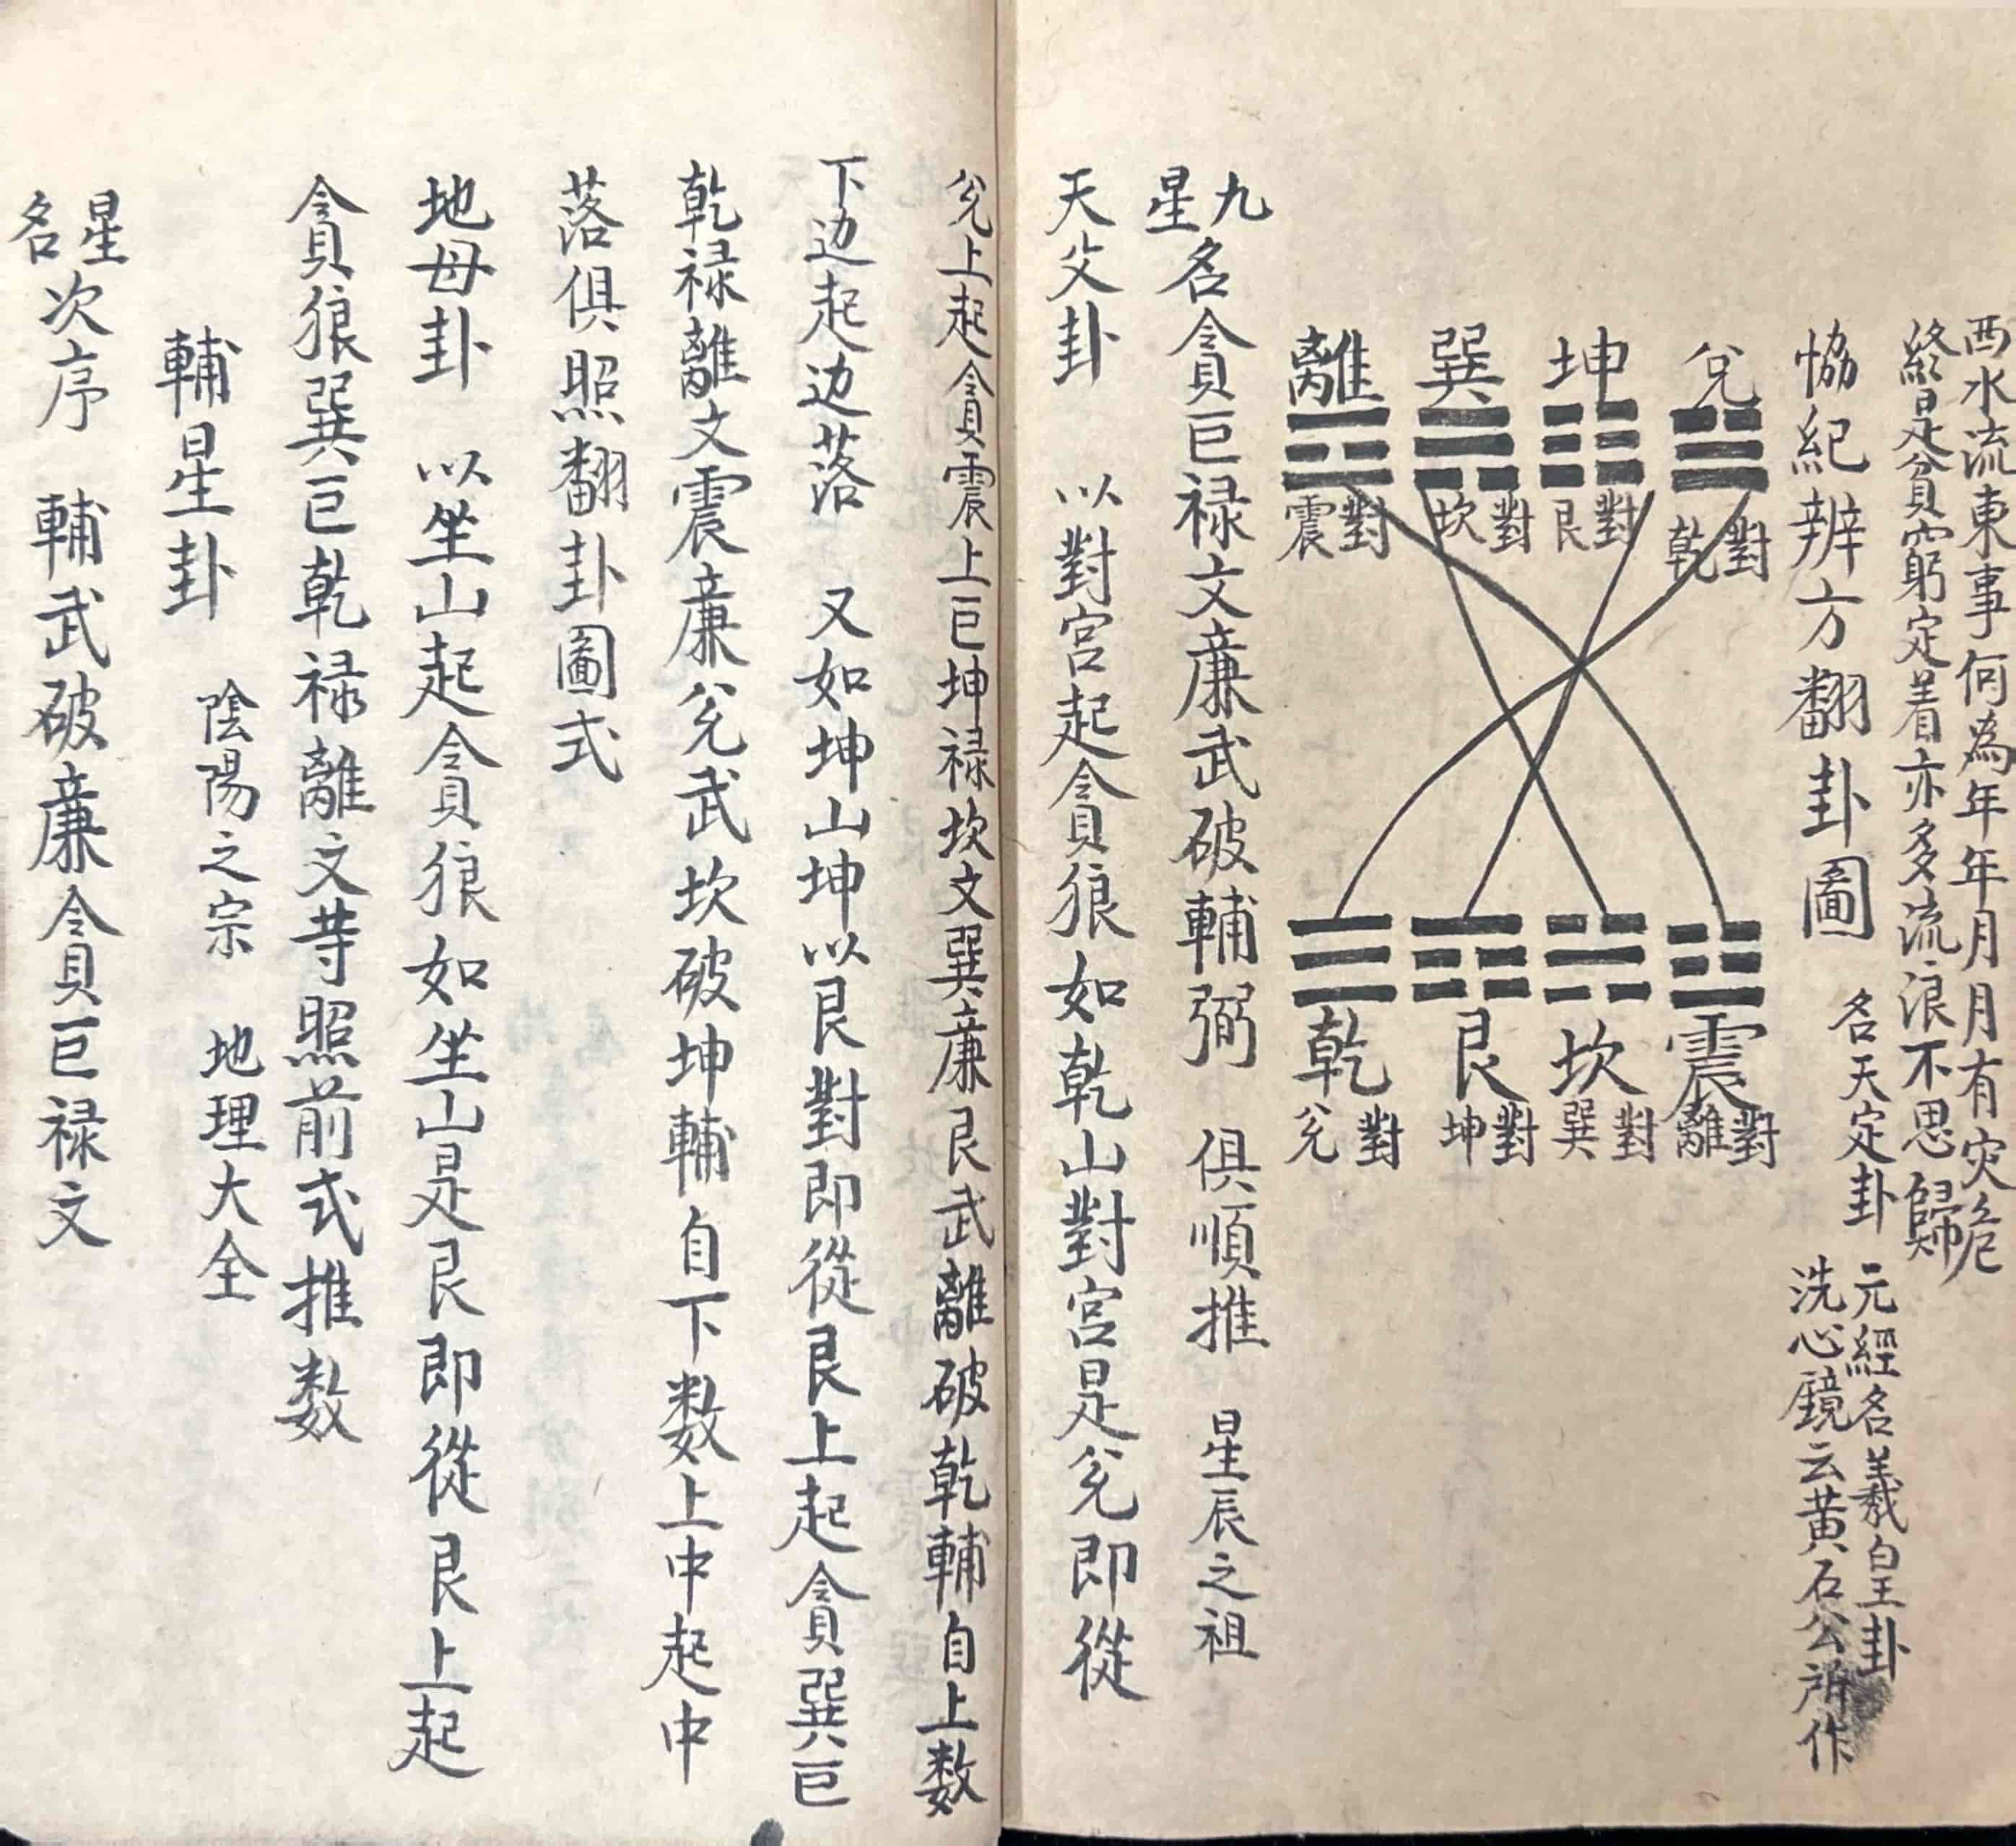 西水流東事何為年年月月有灾危
終是貧窮定着亦多流浪不思歸
恊紀辨方翻卦圖
名天定卦
元經名羲皇卦
洗心鏡云黄石公所作
兌 對乾
坤 對艮
巽 對坎
離 對震
震 對離
坎 對巽
艮 對坤
乾 對兌
九星名貪巨禄文廉武破輔弼 俱順推 星辰之祖
天父卦 以對宮起貪狼如乾山對宮是兌即從
兌上起貪震上巨坤禄坎文巽廉艮武離破乾輔自上数
下边起边落 又如坤山坤以艮對即從艮上起貪巽巨
乾禄離文震廉兌武坎破坤輔自下数上中起中
落俱照翻卦圖式
地母卦 以坐山起貪狼如坐山是艮即從艮上起
貪狼巽巨乾禄離文荨照前式推数
輔星卦 陰陽之宗 地理大全
星名次序 輔武破廉貪巨禄文